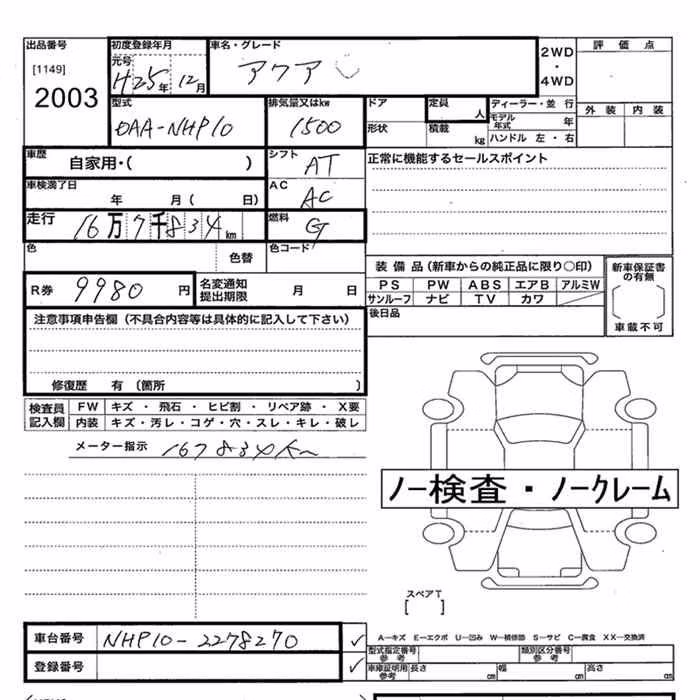 出品番号
[1149]
2003
初度登録年月
元号
H25年12月
車名・グレード
アクア
2WD
・
4WD
評価点
外装 内装
型式
DAA-NHP10
排気量又はkw
1500
ドア
形状
定員 人
積載 kg
ディーラー・並行
モデル年式 年
ハンドル 左・右
車歴 自家用・( )
シフト AT
正常に機能するセールスポイント
車検満了日
年 月( 日)
AC AC
走行 16万7千834km
燃料 G
色 色替
色コード
装備品(新車からの純正品に限り○印)
PS PW ABS エアB アルミW
サンルーフ ナビ TV カワ
新車保証書の有無
車載不可
R券 9980円
名変通知提出期限 月 日
後日品
注意事項申告欄(不具合内容等は具体的に記入して下さい)
修復歴 有 〔箇所 〕
検査員記入欄
FW キズ・飛石・ヒビ割・リペア跡・X要
内装 キズ・汚レ・コゲ・穴・スレ・キレ・破レ
メーター指示 167834km
ノー検査・ノークレーム
スペアT
[ ]
A—キズ E—エクボ U—凹み W—補修跡 S—サビ C—腐食 XX—交換済
車台番号 NHP10-2278270 ✓
登録番号 ✓
型式指定番号 参考
類別区分番号 参考
車庫証明用 参考 長さ cm 幅 cm 高さ cm